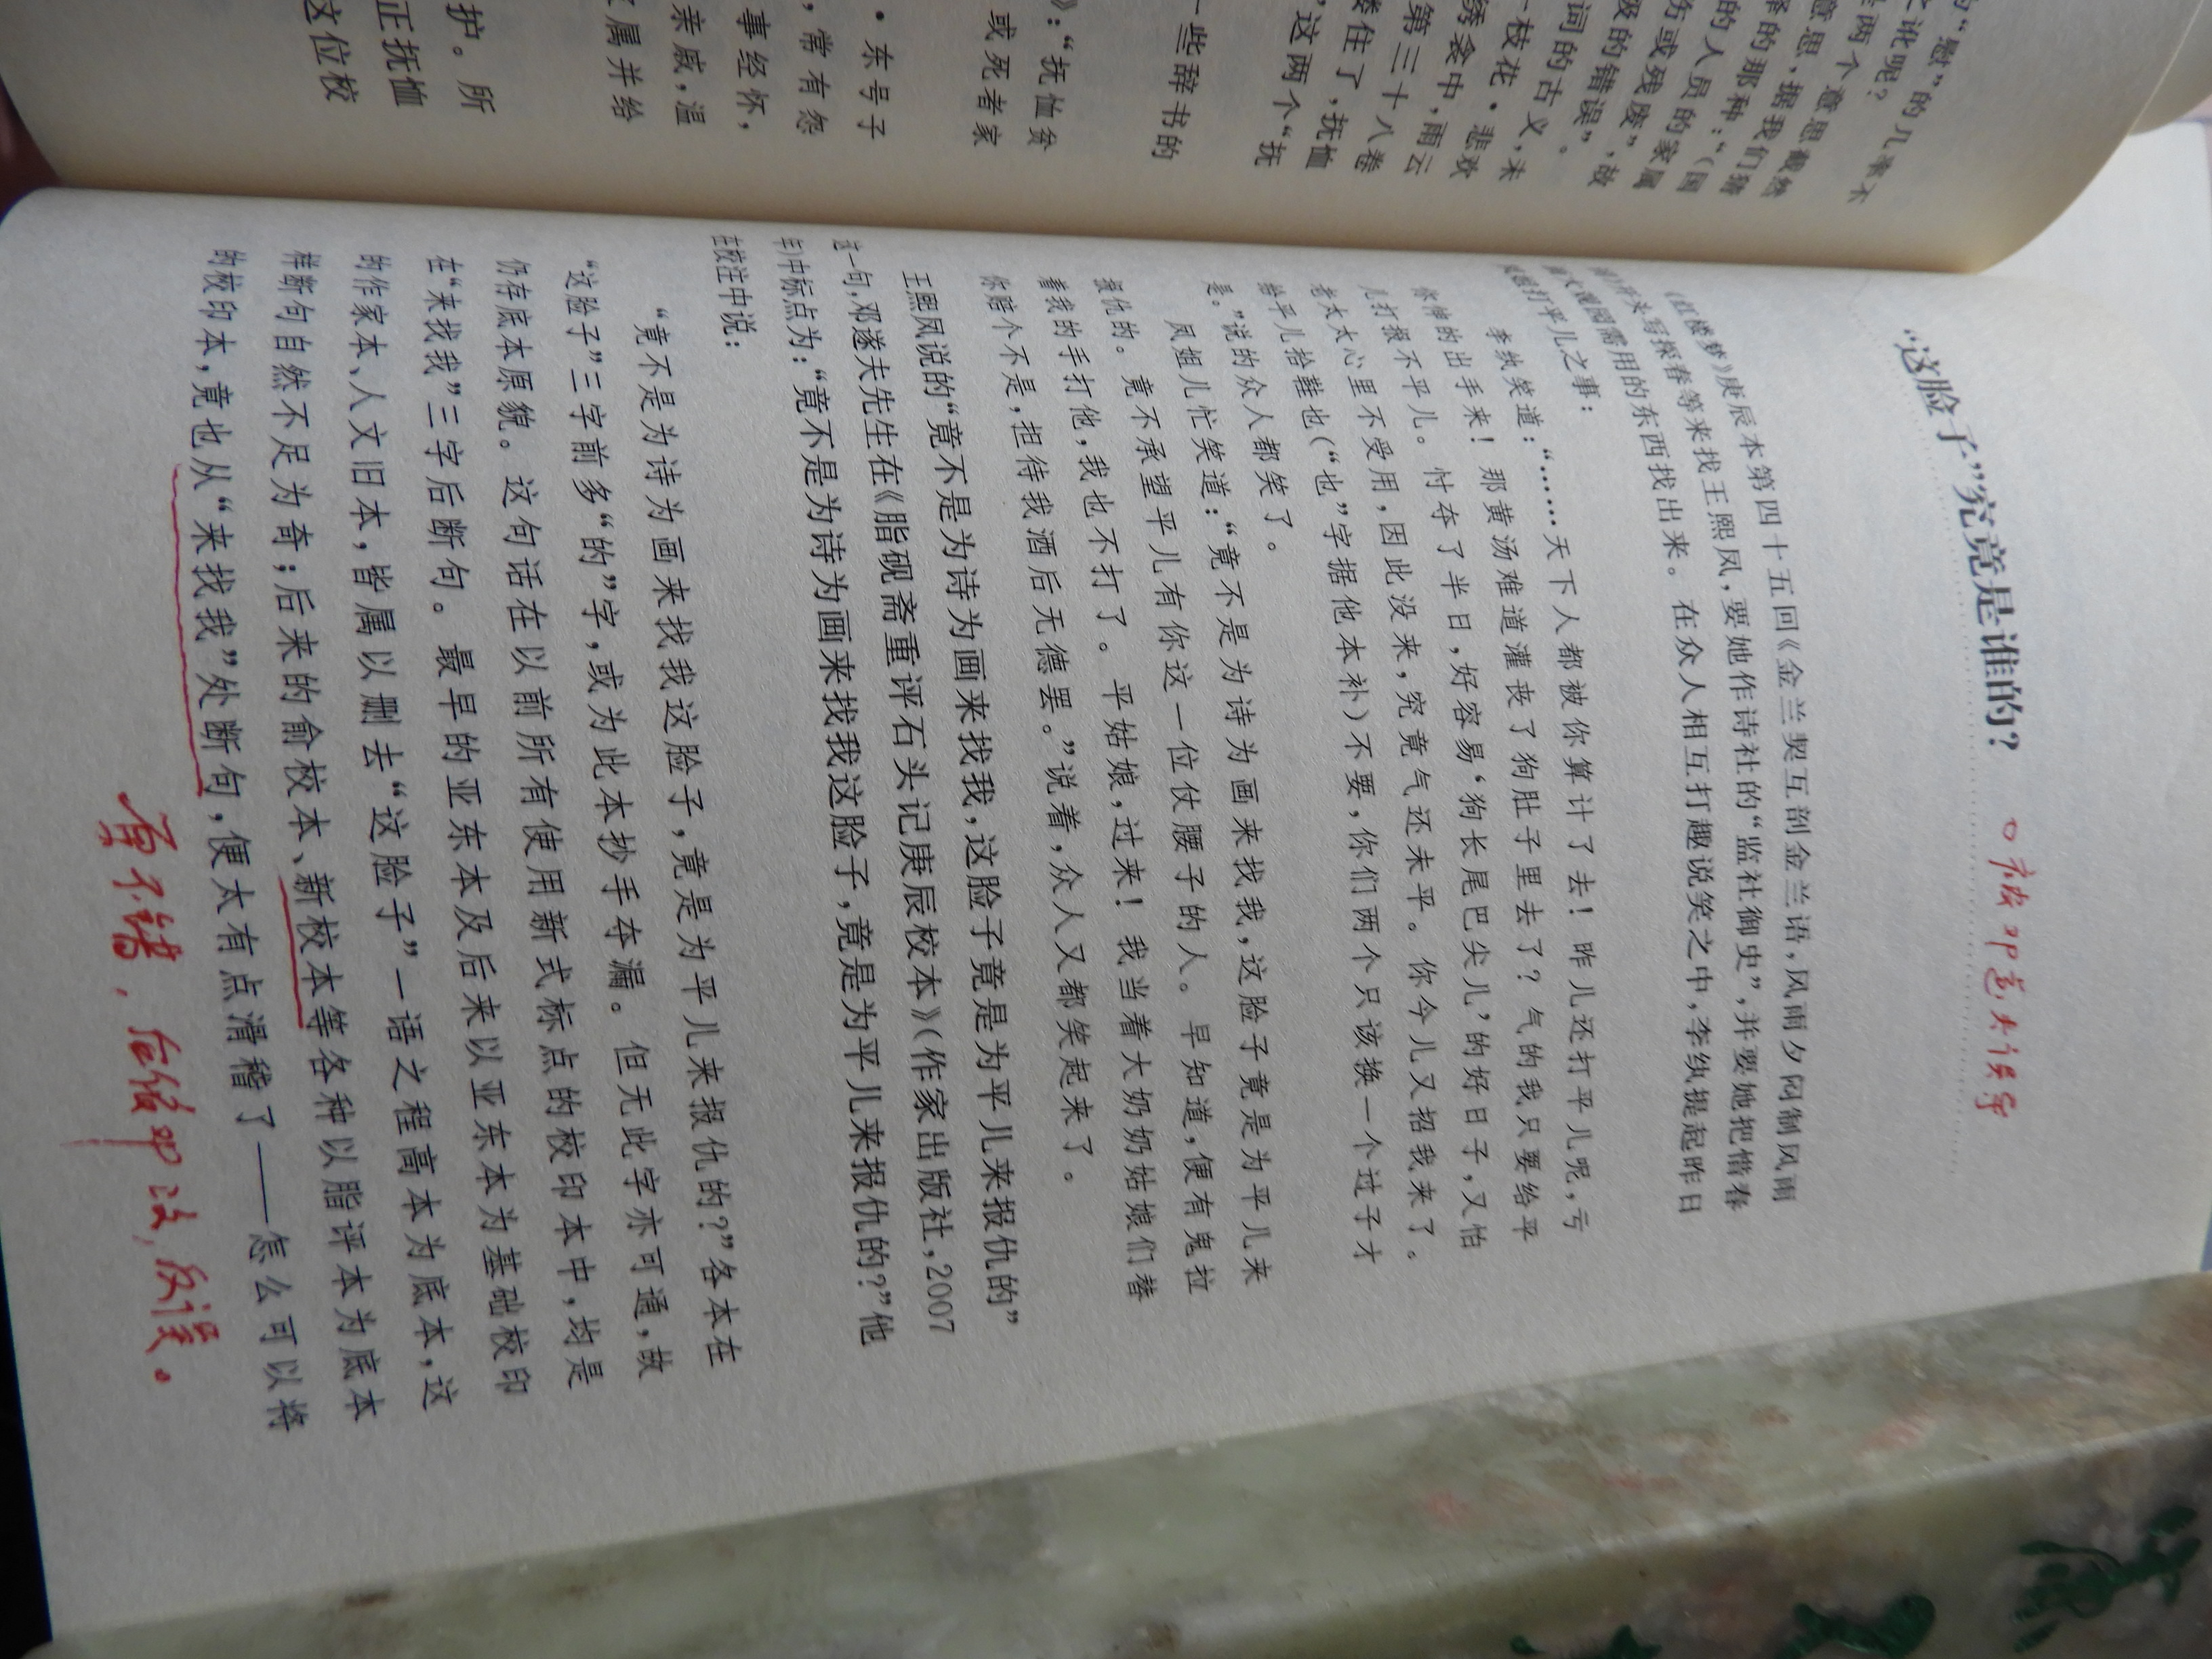 论呢？
两个意思截然
意思，据我们猜
释的那种：“（国
的人员的家属
伤或残废”，故
级的错误”。
词的古义，未
一枝花·悲欢
绣衾中，雨云
第三十八卷
搂住了，抚恤
，这两个“抚
一些辞书的
》：“抚恤贫
或死者家
·东号子
，常有怨
事经怀，
亲戚，温
属并给
护。所
正抚恤
这位校
“这脸子”究竟是谁的？ 被邓遂夫误导
《红楼梦》庚辰本第四十五回《金兰契互剖金兰语，风雨夕闷制风雨
词》开头写探春等来找王熙凤，要她作诗社的“监社御史”，并要她把惜春
画大观园需用的东西找出来。在众人相互打趣说笑之中，李纨提起昨日
凤姐打平儿之事：
李纨笑道：“……天下人都被你算计了去！昨儿还打平儿呢，亏
你伸的出手来！那黄汤难道灌丧了狗肚子里去了？气的我只要给平
儿打报不平儿。忖夺了半日，好容易‘狗长尾巴尖儿’的好日子，又怕
老太太心里不受用，因此没来，究竟气还未平。你今儿又招我来了。
给平儿拾鞋也（“也”字据他本补）不要，你们两个只该换一个过子才
是。”说的众人都笑了。
凤姐儿忙笑道：“竟不是为诗为画来找我，这脸子竟是为平儿来
报仇的。竟不承望平儿有你这一位仗腰子的人。早知道，便有鬼拉
着我的手打他，我也不打了。平姑娘，过来！我当着大奶奶姑娘们替
你赔个不是，担待我酒后无德罢。”说着，众人又都笑起来了。
王熙凤说的“竟不是为诗为画来找我，这脸子竟是为平儿来报仇的”
这一句，邓遂夫先生在《脂砚斋重评石头记庚辰校本》（作家出版社，2007
年）中标点为：“竟不是为诗为画来找我这脸子，竟是为平儿来报仇的？”他
在校注中说：
“竟不是为诗为画来找我这脸子，竟是为平儿来报仇的？”各本在
“这脸子”三字前多“的”字，或为此本抄手夺漏。但无此字亦可通，故
仍存底本原貌。这句话在以前所有使用新式标点的校印本中，均是
在“来找我”三字后断句。最早的亚东本及后来以亚东本为基础校印
的作家本、人文旧本，皆属以删去“这脸子”一语之程高本为底本，这
样断句自然不足为奇；后来的俞校本、新校本等各种以脂评本为底本
的校印本，竟也从“来找我”处断句，便太有点滑稽了——怎么可以将
原不错，后信邓改，反误。